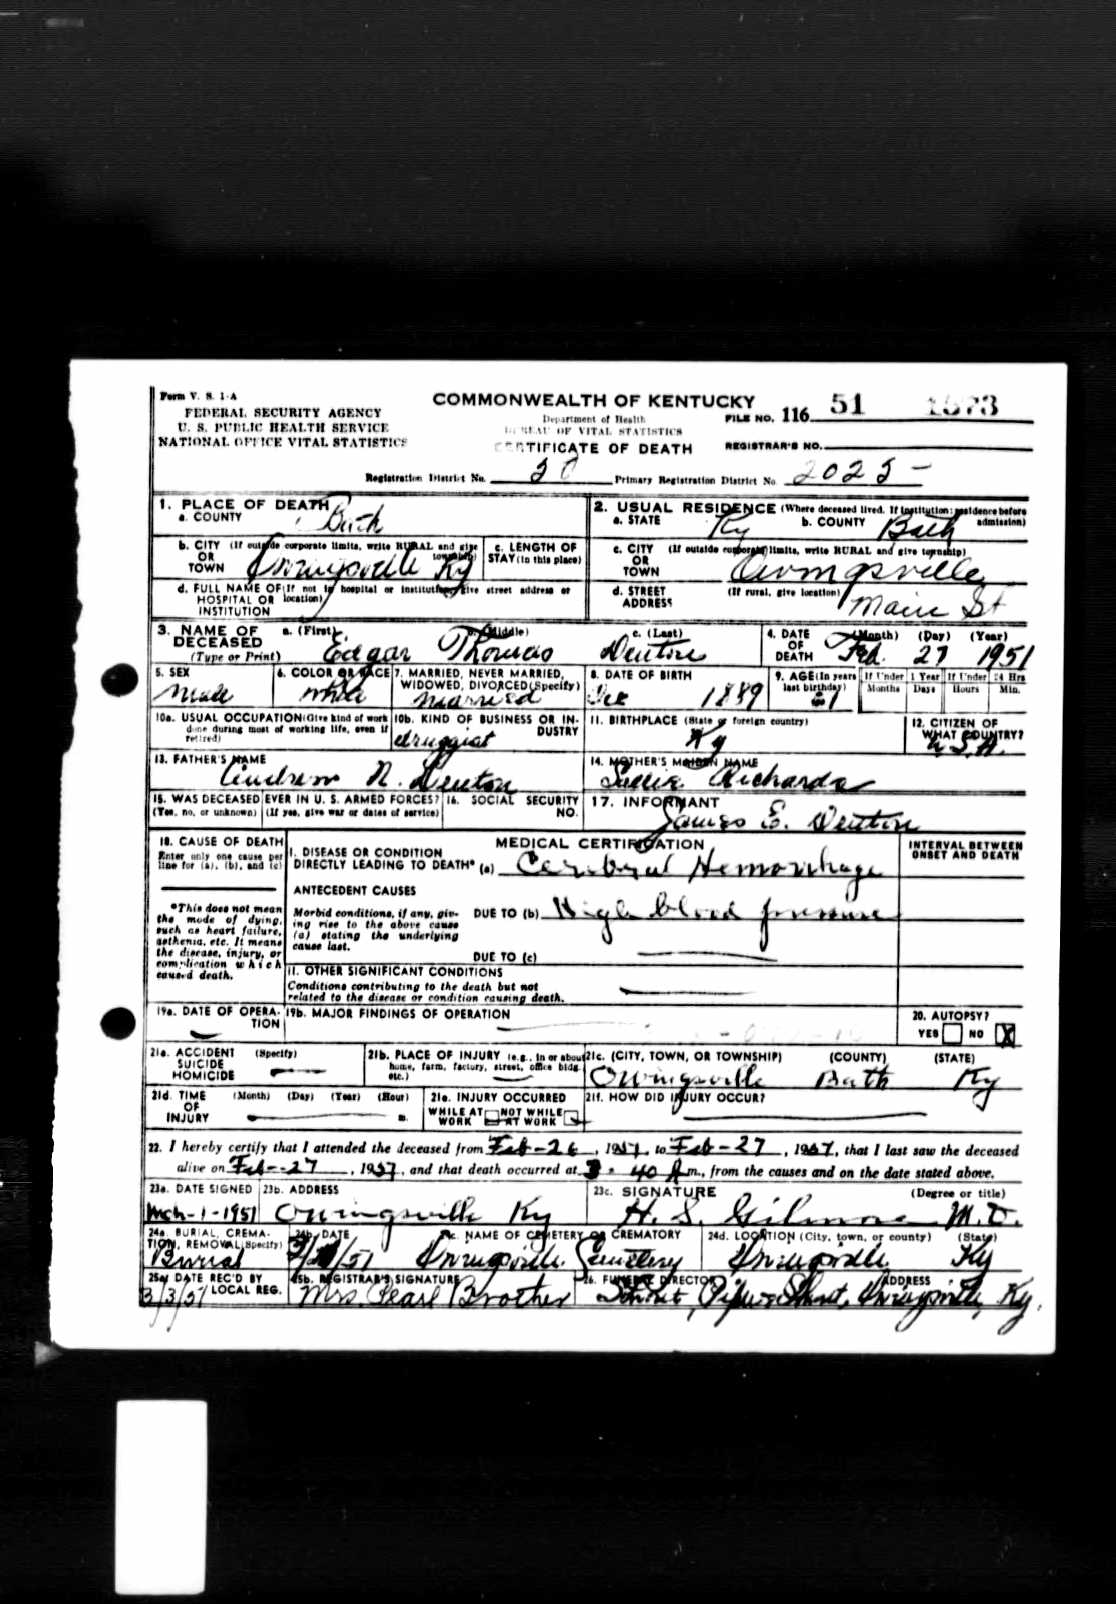 Form V. S. 1-A
FEDERAL SECURITY AGENCY
U. S. PUBLIC HEALTH SERVICE
NATIONAL OFFICE VITAL STATISTICS
COMMONWEALTH OF KENTUCKY
Department of Health
BUREAU OF VITAL STATISTICS
CERTIFICATE OF DEATH
FILE NO. 116 51
REGISTRAR'S NO.
Registration District No. Primary Registration District No. 2025
1. PLACE OF DEATH
a. COUNTY Bath
b. CITY (If outside corporate limits, write RURAL and give township)
OR
TOWN Owingsville Ky
c. LENGTH OF
STAY (in this place)
d. FULL NAME OF (If not in hospital or institution, give street address or
HOSPITAL OR location)
INSTITUTION
2. USUAL RESIDENCE (Where deceased lived. If institution: residence before
admission)
a. STATE Ky b. COUNTY Bath
c. CITY (If outside corporate limits, write RURAL and give township)
OR
TOWN Owingsville
d. STREET (If rural, give location)
ADDRESS Main St
3. NAME OF DECEASED a. (First) b. (Middle) c. (Last)
(Type or Print) Edgar Thomas Denton
4. DATE OF DEATH (Month) (Day) (Year)
Feb. 27 1951
5. SEX
Male
6. COLOR OR RACE
White
7. MARRIED, NEVER MARRIED,
WIDOWED, DIVORCED (Specify)
Married
8. DATE OF BIRTH
Dec 1889
9. AGE (In years
last birthday)
61
If Under 1 Year
Months Days
If Under 24 Hrs
Hours Min.
10a. USUAL OCCUPATION (Give kind of work
done during most of working life, even if
retired)
10b. KIND OF BUSINESS OR IN-
DUSTRY
druggist
11. BIRTHPLACE (State or foreign country)
Ky
12. CITIZEN OF
WHAT COUNTRY?
U.S.A.
13. FATHER'S NAME
Andrew N. Denton
14. MOTHER'S MAIDEN NAME
Sallie Richards
15. WAS DECEASED EVER IN U. S. ARMED FORCES?
(Yes, no, or unknown) (If yes, give war or dates of service)
16. SOCIAL SECURITY
NO.
17. INFORMANT
James E. Denton
18. CAUSE OF DEATH
Enter only one cause per
line for (a), (b), and (c)
*This does not mean
the mode of dying,
such as heart failure,
asthenia, etc. It means
the disease, injury, or
complication which
caused death.
MEDICAL CERTIFICATION
I. DISEASE OR CONDITION
DIRECTLY LEADING TO DEATH* (a) Cerebral Hemorrhage
ANTECEDENT CAUSES
Morbid conditions, if any, giv-
ing rise to the above cause
(a) stating the underlying
cause last.
DUE TO (b) High blood pressure
DUE TO (c)
II. OTHER SIGNIFICANT CONDITIONS
Conditions contributing to the death but not
related to the disease or condition causing death.
INTERVAL BETWEEN
ONSET AND DEATH
19a. DATE OF OPERA-
TION
19b. MAJOR FINDINGS OF OPERATION
20. AUTOPSY?
YES NO X
21a. ACCIDENT (Specify)
SUICIDE
HOMICIDE
21b. PLACE OF INJURY (e.g., in or about
home, farm, factory, street, office bldg.
etc.)
21c. (CITY, TOWN, OR TOWNSHIP) (COUNTY) (STATE)
Owingsville Bath Ky
21d. TIME (Month) (Day) (Year) (Hour)
OF
INJURY m.
21e. INJURY OCCURRED
WHILE AT NOT WHILE
WORK AT WORK
21f. HOW DID INJURY OCCUR?
22. I hereby certify that I attended the deceased from Feb-26, 1951, to Feb-27, 1951, that I last saw the deceased
alive on Feb-27, 1951, and that death occurred at 3:40 A m., from the causes and on the date stated above.
23a. DATE SIGNED
Mch-1-1951
23b. ADDRESS
Owingsville Ky
23c. SIGNATURE (Degree or title)
H. S. Gilmore M.D.
24a. BURIAL, CREMA-
TION, REMOVAL (Specify)
Burial
24b. DATE
24c. NAME OF CEMETERY OR CREMATORY
Owingsville Cemetery
24d. LOCATION (City, town, or county) (State)
Owingsville Ky
25a. DATE REC'D BY
LOCAL REG.
3/3/51
25b. REGISTRAR'S SIGNATURE
Mrs. Pearl Brother
26. FUNERAL DIRECTOR ADDRESS
Owingsville, Ky.